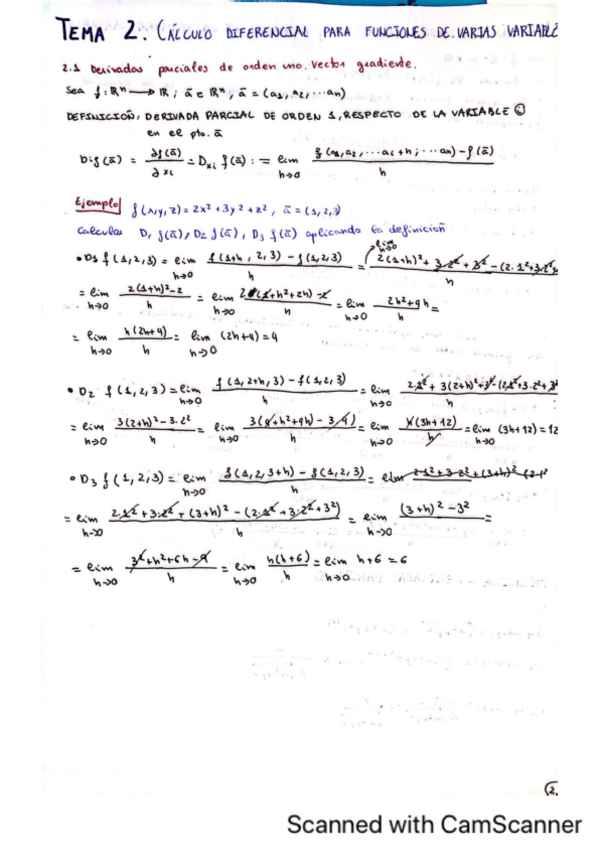 TEMA 2: CÁLCULO DIFERENCIAL PARA FUNCIONES DE VARIAS VARIABLE
2.1 Derivadas parciales de orden uno. Vector gradiente.
Sea f: ℝⁿ → ℝ ; ā ∈ ℝⁿ, ā = (a₁, a₂, ... aₙ)
DEFINICIÓN: DERIVADA PARCIAL DE ORDEN 1, RESPECTO DE LA VARIABLE i
en el pto. ā
Dif(ā) = ∂f(ā)/∂xi = Dxi f(ā) := lim h→0 [f(a₁, a₂, ... ai + h; ... an) - f(ā)]/h
Ejemplo f(x,y,z) = 2x² + 3y² + z², ā = (1,2,3)
Calcular D₁ f(ā), D₂ f(ā), D₃ f(ā) aplicando la definición
• D₁ f(1,2,3) = lim h→0 [f(1+h, 2, 3) - f(1,2,3)]/h = lim h→0 [2(1+h)² + 3·2² + 3² - (2·1² + 3·2²+]/h
= lim h→0 [2(1+h)² - 2]/h = lim h→0 [2(1+h²+2h) - 2]/h = lim h→0 [2h²+4h]/h =
= lim h→0 h(2h+4)/h = lim h→0 (2h+4) = 4
• D₂ f(1,2,3) = lim h→0 [f(1, 2+h, 3) - f(1,2,3)]/h = lim h→0 [2·1² + 3(2+h)² + 3² - (2·1² + 3·2² + 3²]/h
= lim h→0 [3(2+h)² - 3·2²]/h = lim h→0 [3(4+h²+4h) - 3·4]/h = lim h→0 h(3h+12)/h = lim h→0 (3h+12) = 12
• D₃ f(1,2,3) = lim h→0 [f(1,2,3+h) - f(1,2,3)]/h = lim 2·1²+3·2²+(3+h)² (2·1²
= lim h→0 [2·1² + 3·2² + (3+h)² - (2·1² + 3·2² + 3²)]/h = lim h→0 [(3+h)² - 3²]/h =
= lim h→0 [3² + h² + 6h - 9]/h = lim h→0 h(h+6)/h = lim h→0 h+6 = 6
(2.
Scanned with CamScanner